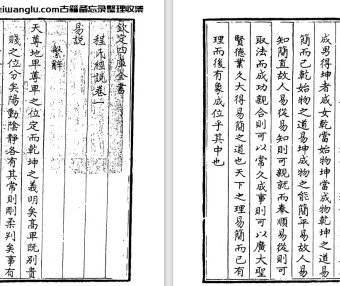 eiwanglu.com古籍备忘录整理收集
欽定四庫全書
程氏經說卷一
易說
繫辭
天尊地卑尊卑之位定而乾坤之義明矣髙卑既别貴
賤之位分矣陽動隂静各有其常則剛柔判矣事有
成男得坤者成女乾當始物坤當成物乾坤之道易
簡而已乾始物之道易坤成物之能簡平易故人易
知簡直故人易從易知則可親就而奉順易從則可
取法而成功親合則可以常久成事則可以廣大聖
賢德業久大得易簡之道也天下之理易簡而已有
理而後有象成位乎其中也